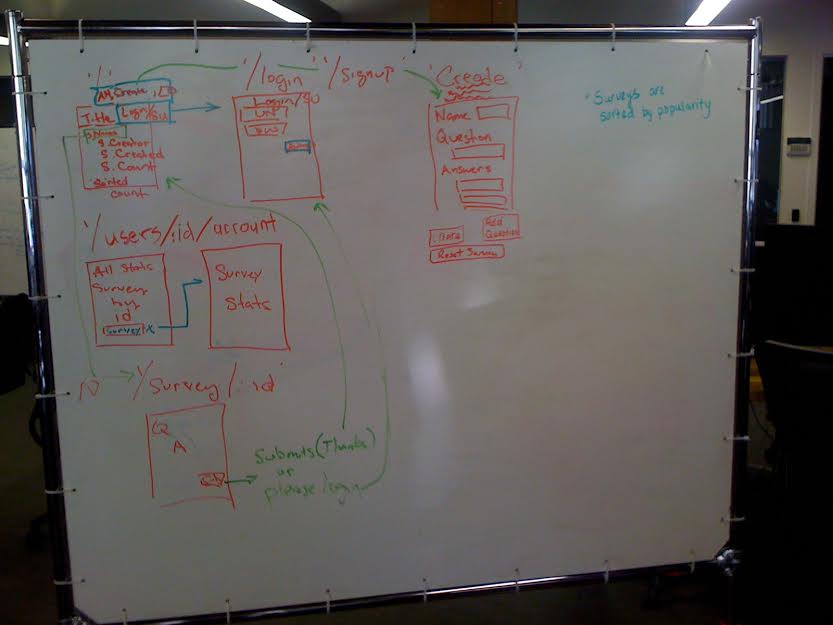 '/'
Create
Title
Login/
S.Creator
S.Created
S.Count
Sorted
count
'/login'
Login/SU
UN
PW
'/signup'
'Create'
Name
Question
Answers
Add
Question
Reset Survey
* Surveys are
sorted by popularity
'/users/:id/account'
All Stats
Survey
by
id
Survey X
Survey
Stats
'/Survey/:id'
Q
A
Submits (Thanks)
or
please login